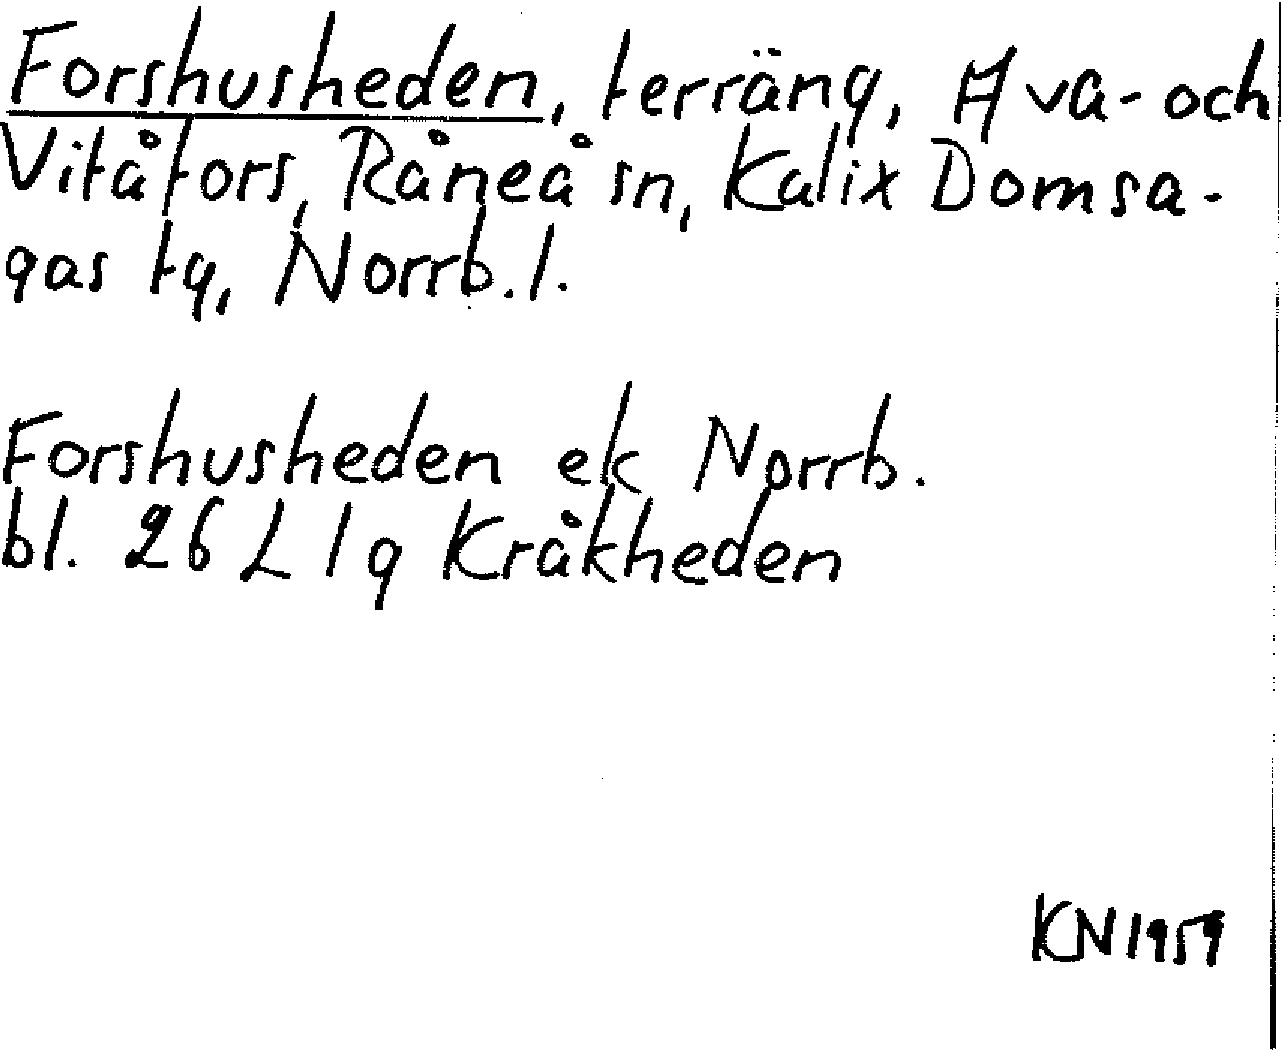 Forshusheden, terräng, Ava- och
Vitåfors, Råneå sn, Kalix Domsa-
gas tg, Norrb. l.
Forshusheden ek Norrb.
bl. 26 L 1 g Kråkheden
KN 1959